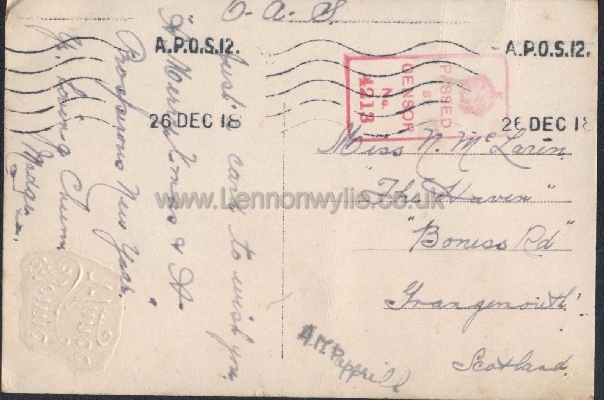 O. A. S.
A.P.O.S.12.
26 DEC 18
A.P.O.S.12.
26 DEC 18
PASSED
BY
CENSOR
No.
4213
Just a card to wish you
A Merry Xmas & A
Prosperous New Year.
Yr Loving Chum
Madge
Miss N. McLaren
"The Haven"
"Boness Rd"
Grangemouth
Scotland.
www.Lennonwylie.co.uk